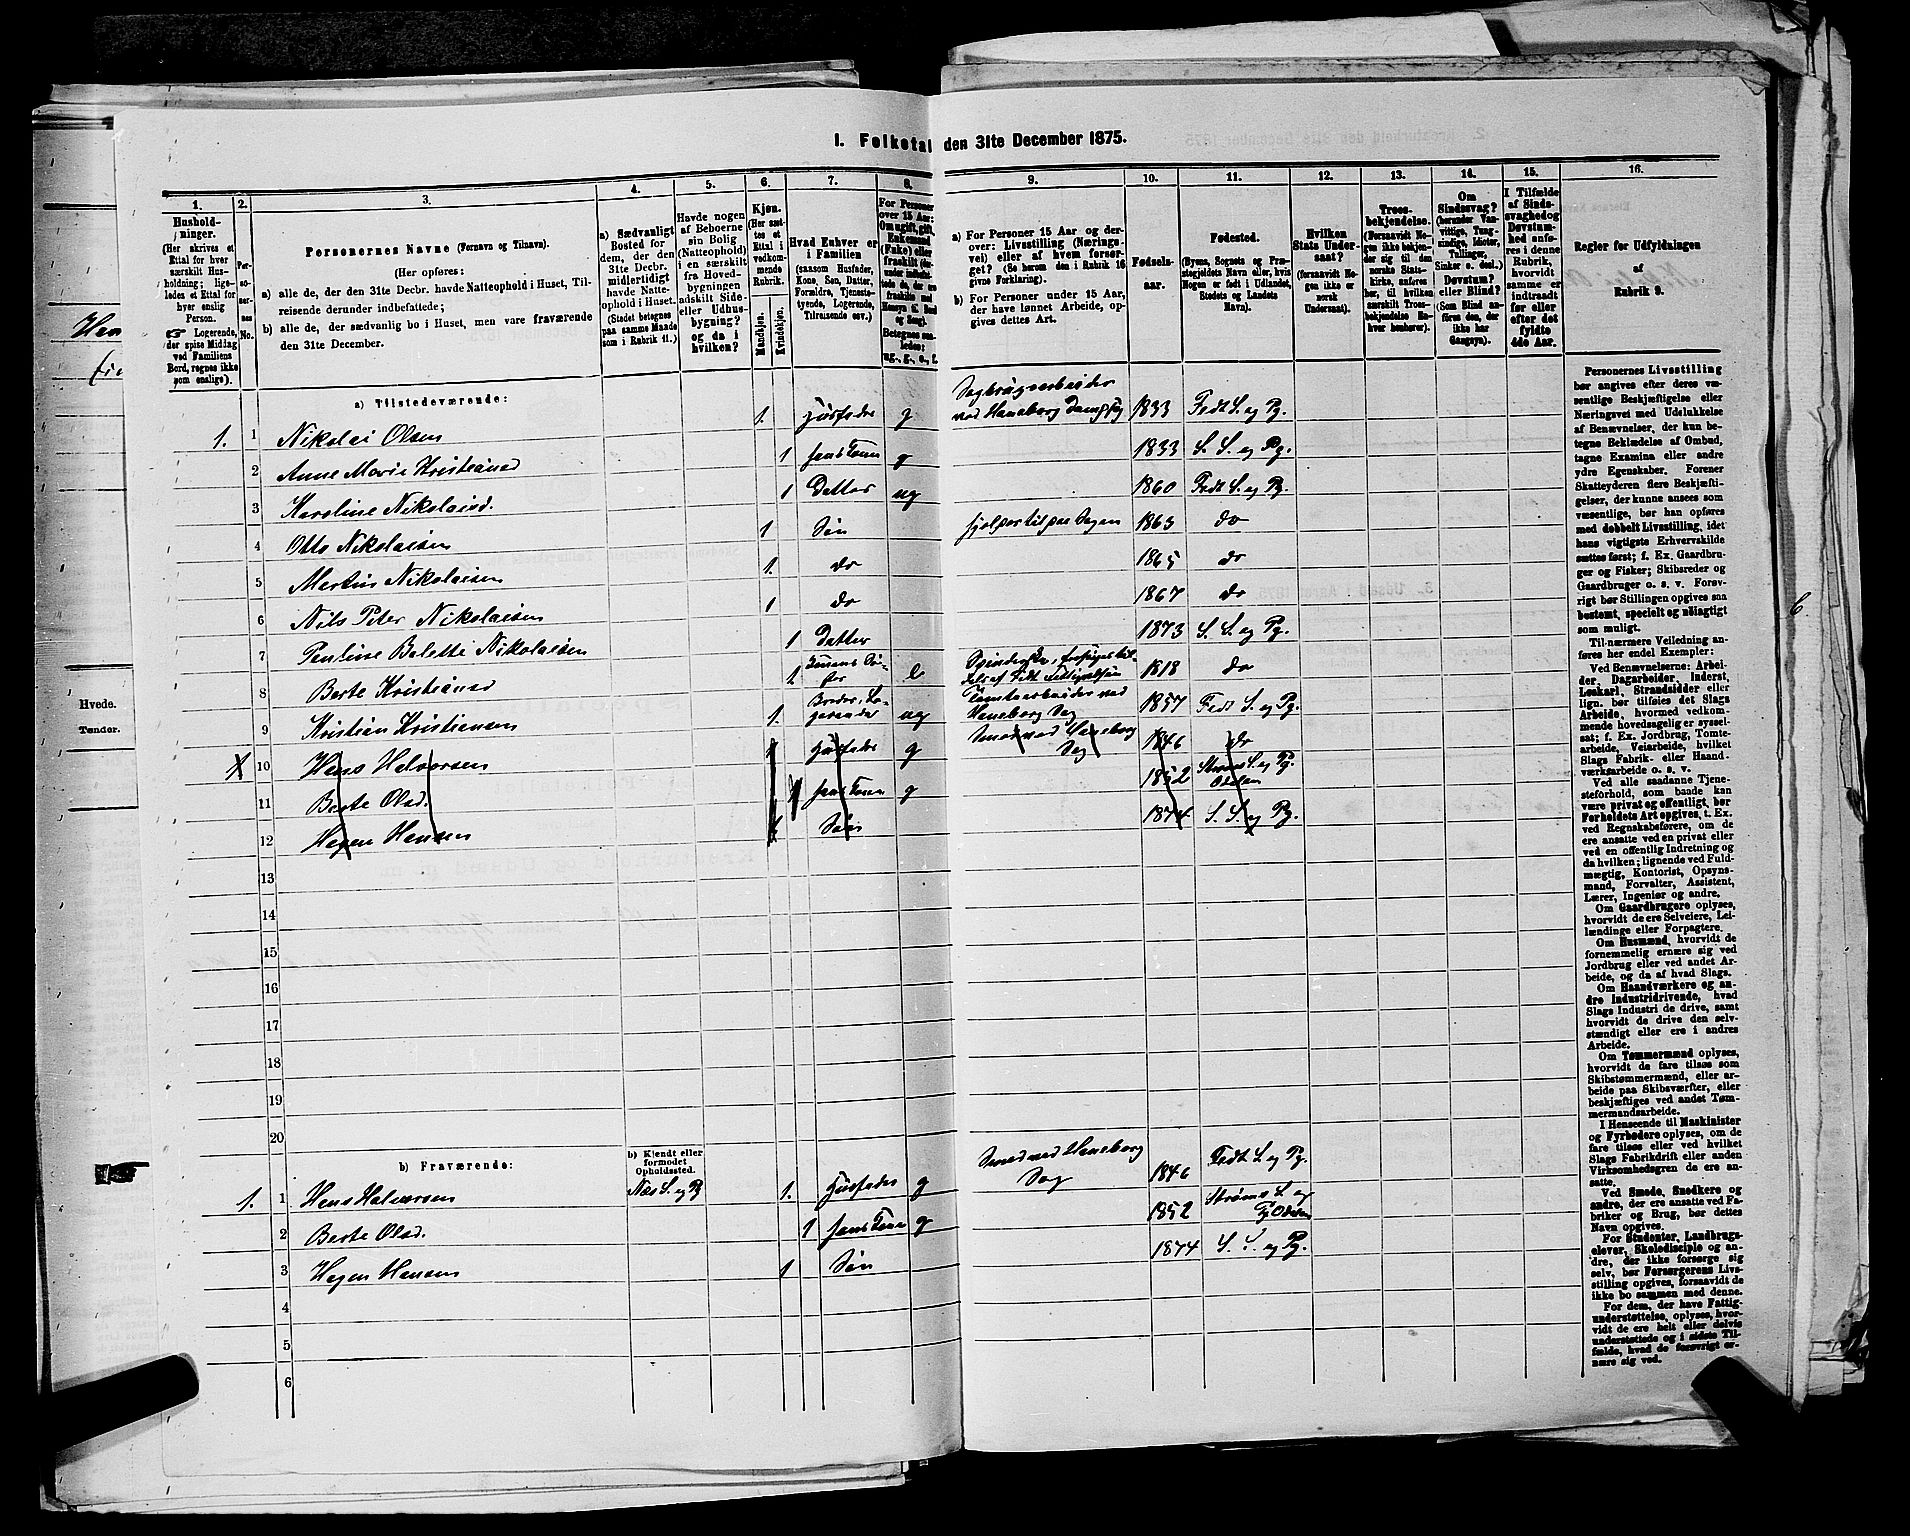 I. Folketal den 31te December 1875.
1. 2. 3. 4. 5. 6. 7. 8. 9. 10. 11. 12. 13. 14. 15. 16.
Hushold-
ninger.
(Her skrives et
Ettal for hver
særskilt Hus-
holdning; lige-
ledes et Ettal for
hver enslig
Person.
Logerende,
der spise Middag
ved Familiens
Bord, regnes ikke
som enslige).
Per-
so-
ner-
nes
No.
Personernes Navne (Fornavn og Tilnavn).
(Her opføres:
a) alle de, der den 31te Decbr. havde Natteophold i Huset, Til-
reisende derunder indbefattede;
b) alle de, der sædvanlig bo i Huset, men vare fraværende
den 31te December.
a) Sædvanligt
Bosted for
dem, der den
31te Decbr.
midlertidigt
havde Natte-
ophold i Huset.
(Stedet betegnes
paa samme Maade
som i Rubrik 11.)
Havde nogen
af Beboerne
sin Bolig
(Natteophold)
i en særskilt
fra Hoved-
bygningen
adskilt Side-
eller Udhus-
bygning?
og da i
hvilken?
Kjøn.
(Her sæt-
tes et
Ettal i
vedkom-
mende
Rubrik.
Mandkjøn.
Kvindekjøn.
Hvad Enhver er
i Familien
(saasom Husfader,
Kone, Søn, Datter,
Forældre, Tjeneste-
tyende, Logerende,
Tilreisende osv.)
For Personer
over 15 Aar:
Om ugift, gift,
Enkemand
(Enke) eller
fraskilt
Betegnes saa-
ledes:
ug., g., e., f.
a) For Personer 15 Aar og der-
over: Livsstilling (Nærings-
vei) eller af hvem forsør-
get? (Se herom den i Rubrik 16
givne Forklaring).
b) For Personer under 15 Aar,
der have lønnet Arbeide, op-
gives dettes Art.
Fødsels-
aar.
Fødested.
(Byens, Sognets og Præ-
stegjeldets Navn eller, hvis
Nogen er født i Udlandet,
Stedets og Landets
Navn).
Hvilken
Stats Under-
saat?
(forsaavidt No-
gen ikke er
norsk
Undersaat).
Troes-
bekjendelse.
(Forsaavidt No-
gen ikke bekjen-
der sig til den
norske Stats-
kirke, anføres
her, til hvilken
særskilt Troes-
bekjendelse En-
hver henhører).
Om
Sindssvag?
(herunder Van-
vittige, Tung-
sindige, Idioter,
Tullinger,
Sinker o. desl.)
Døvstum?
eller Blind?
(Som Blind an-
føres den, der
ikke har
Gangsyn).
I Tilfælde
af Sinds-
svaghed og
Døvstum-
hed anfø-
res i denne
Rubrik,
hvorvidt
samme er
indtraadt
før eller
efter det
fyldte
4de Aar.
Regler for Udfyldningen
af
Rubrik 9.
a) Tilstedeværende:
1. 1 Nikolai Olsen 1. Husfader g Sagbrugsarbeider ved Haneborg Dampsag 1833 Fedt S. og Pg.
2 Anne Marie Kristiansd 1 hans Kone g 1833 S. S. og Pg.
3 Karoline Nikolaisd. 1 Datter ug 1860 Fedt S. og Pg.
4 Otto Nikolaisen 1 Søn hjelper til paa Sagen 1863 do
5 Martin Nikolaisen 1. do 1865 do
6 Nils Peter Nikolaisen 1 do 1867 do
7 Pauline Bolette Nikolaisen 1 Datter 1873 S. S. og Pg.
8 Berte Kristiansd 1 Konens Sø-ster e 1818 do
9 Kristian Kristiansen 1. Broder, Lo-gerende ug Tomtearbeider ved Haneborg Sag 1857 Fedt S. og Pg.
X 10 Hans Halvorsen 1 Husfader g Smed ved Haneborg Sag 1846 do
11 Berte Olsd. 1 hans Kone g 1852 Strøms S. og Pg. Odalen
12 Hagen Hansen 1 Søn 1874 S. S. og Pg.
13
14
15
16
17
18
19
20
b) Fraværende:
b) Kjendt eller
formodet
Opholdssted.
1. 1 Hans Halvorsen Næs S. og Pg 1. Husfader g Smed ved Haneborg Sag 1846 Fedt S. og Pg.
2 Berte Olsd. 1 hans Kone g 1852 Strøms S. og Pg Odalen
3 Hagen Hansen 1 Søn 1874 S. S. og Pg.
4
5
6
Personernes Livsstilling
bør angives efter deres væ-
sentlige Beskjæftigelse eller
Næringsvei med Udelukkelse
af Benævnelser, der kun be-
tegne Beklædelse af Ombud,
tagne Examina eller andre
ydre Egenskaber. Forener
Skatteyderen flere Beskjæfti-
gelser, der kunne ansees som
væsentlige, bør han opføres
med dobbelt Livsstilling, idet
hans vigtigste Erhvervskilde
sættes først; f. Ex. Gaardbru-
ger og Fisker; Skibsreder og
Gaardbruger o. s. v. Forøv-
rigt bør Stillingen opgives saa
bestemt, specielt og nøiagtigt
som muligt.
Til nærmere Veiledning an-
føres her endel Exempler:
Ved Benævnelserne: Arbei-
der, Dagarbeider, Inderst,
Løskarl, Strandsidder eller
lign. bør tilføies det Slags
Arbeide, hvormed vedkom-
mende hovedsagelig er syssel-
sat; f. Ex. Jordbrug, Tomte-
arbeide, Veiarbeide, hvilket
Slags Fabrik- eller Haand-
værksarbeide o. s. v.
Ved alle saadanne Tjene-
steforhold, som baade kan
være privat og offentligt, bør
Forholdets Art opgives, t. Ex.
ved Regnskabsførere, om de
ere ansatte ved en privat eller
ved en offentlig Indretning og
da hvilken; lignende ved Fuld-
mægtig, Kontorist, Opsyns-
mand, Forvalter, Assistent,
Lærer, Ingeniør og andre.
Om Gaardbrugere oplyses,
hvorvidt de ere Selveiere, Lei-
lændinge eller Forpagtere.
Om Husmænd, hvorvidt de
fornemmelig ernære sig ved
Jordbrug eller ved andet Ar-
beide, og da af hvad Slags.
Om Haandværkere og an-
dre Industridrivende, hvad
Slags Industri de drive, samt
hvorvidt de drive den selv-
stændigt eller ere i andres
Arbeide.
Om Tømmermænd oplyses,
hvorvidt de fare tilsøs som
Skibstømmermænd, eller ar-
beide paa Skibsværfter, eller
beskjæftiges ved andet Tøm-
mermandsarbeide.
I Henseende til Maskinister
og Fyrbødere oplyses, om de
fare tilsøs eller ved hvilket
Slags Fabrikdrift eller anden
Virksomhedsgren de ere an-
satte.
Ved Smede, Snedkere og
andre, der ere ansatte ved Fa-
briker og Brug, bør dettes
Navn opgives.
For Studenter, Landbrugs-
elever, Skoledisciple og an-
dre, der ikke forsørge sig
selv, bør Forsørgerens Livs-
stilling opgives, forsaavidt de
ikke bo sammen med denne.
For dem, der have Fattig-
understøttelse, oplyses, hvor-
vidt de ere helt eller delvis
understøttede og i sidste Til-
fælde, hvad de forøvrigt er-
nære sig ved.
Hvede.
Tønder.
6